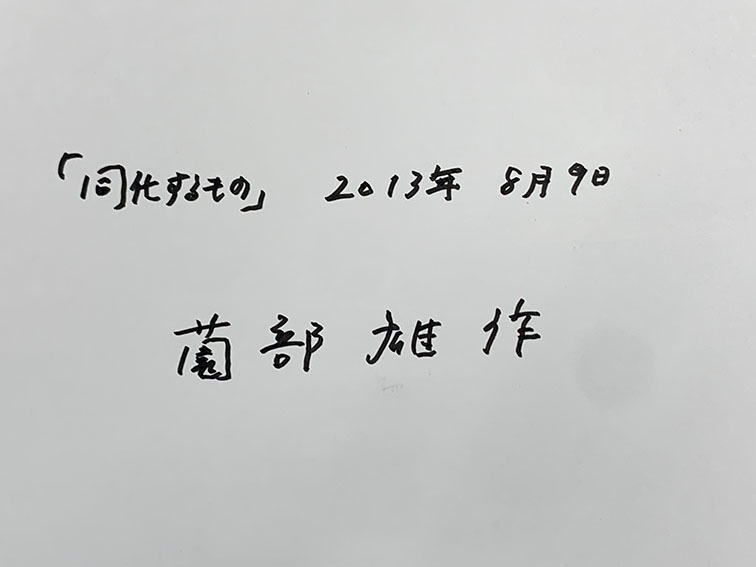 「同化するもの」 2013年 8月9日
薗部 雄作